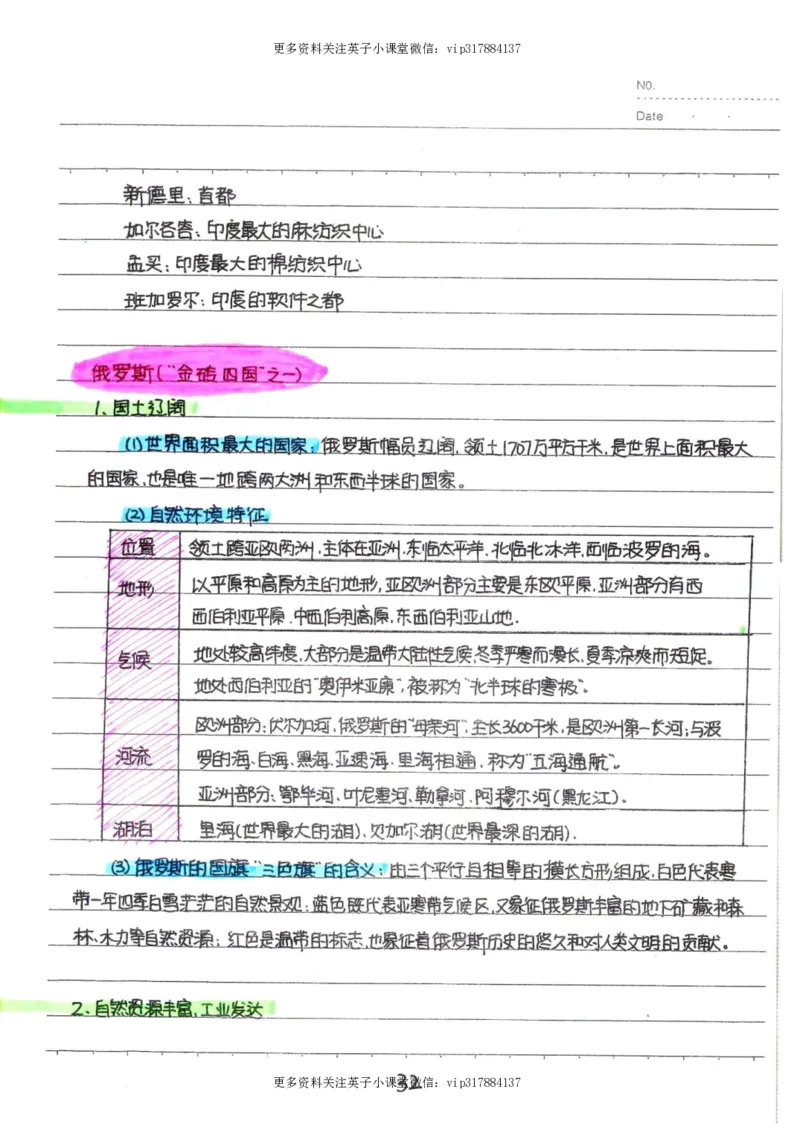 更多资料关注英子小课堂微信：vip317884137
NO.
Date
新德里：首都
加尔各答：印度最大的麻纺织中心
孟买：印度最大的棉纺织中心
班加罗尔：印度的软件之都
俄罗斯（“金砖四国”之一）
1、国土辽阔
(1)世界面积最大的国家：俄罗斯幅员辽阔，领土1707万平方千米，是世界上面积最大
的国家，也是唯一地跨两大洲和东西半球的国家。
(2)自然环境特征
位置 领土跨亚欧两洲，主体在亚洲，东临太平洋、北临北冰洋，西临波罗的海。
地形 以平原和高原为主的地形，亚欧洲部分主要是东欧平原，亚洲部分有西
西伯利亚平原，中西伯利高原，东西伯利亚山地．
气候 地处较高纬度，大部分是温带大陆性气候，冬季严寒而漫长，夏季凉爽而短促。
地处西伯利亚的“奥伊米亚康”，被称为“北半球的寒极”。
欧洲部分：伏尔加河，俄罗斯的“母亲河”，全长3600千米，是欧洲第一长河；与波
河流 罗的海、白海、黑海、亚速海、里海相通，称为“五海通航”。
亚洲部分：鄂毕河、叶尼塞河、勒拿河、阿穆尔河（黑龙江）．
湖泊 里海（世界最大的湖）、贝加尔湖（世界最深的湖）．
(3)俄罗斯的国旗“三色旗”的含义：由三个平行且相等的横长方形组成，白色代表寒
带一年四季白雪茫茫的自然景观；蓝色既代表亚寒带气候区，又象征俄罗斯丰富的地下矿藏和森
林、水力等自然资源；红色是温带的标志，也象征着俄罗斯历史的悠久和对人类文明的贡献。
2、自然资源丰富，工业发达
更多资料关注英子小课堂微信：vip317884137
32